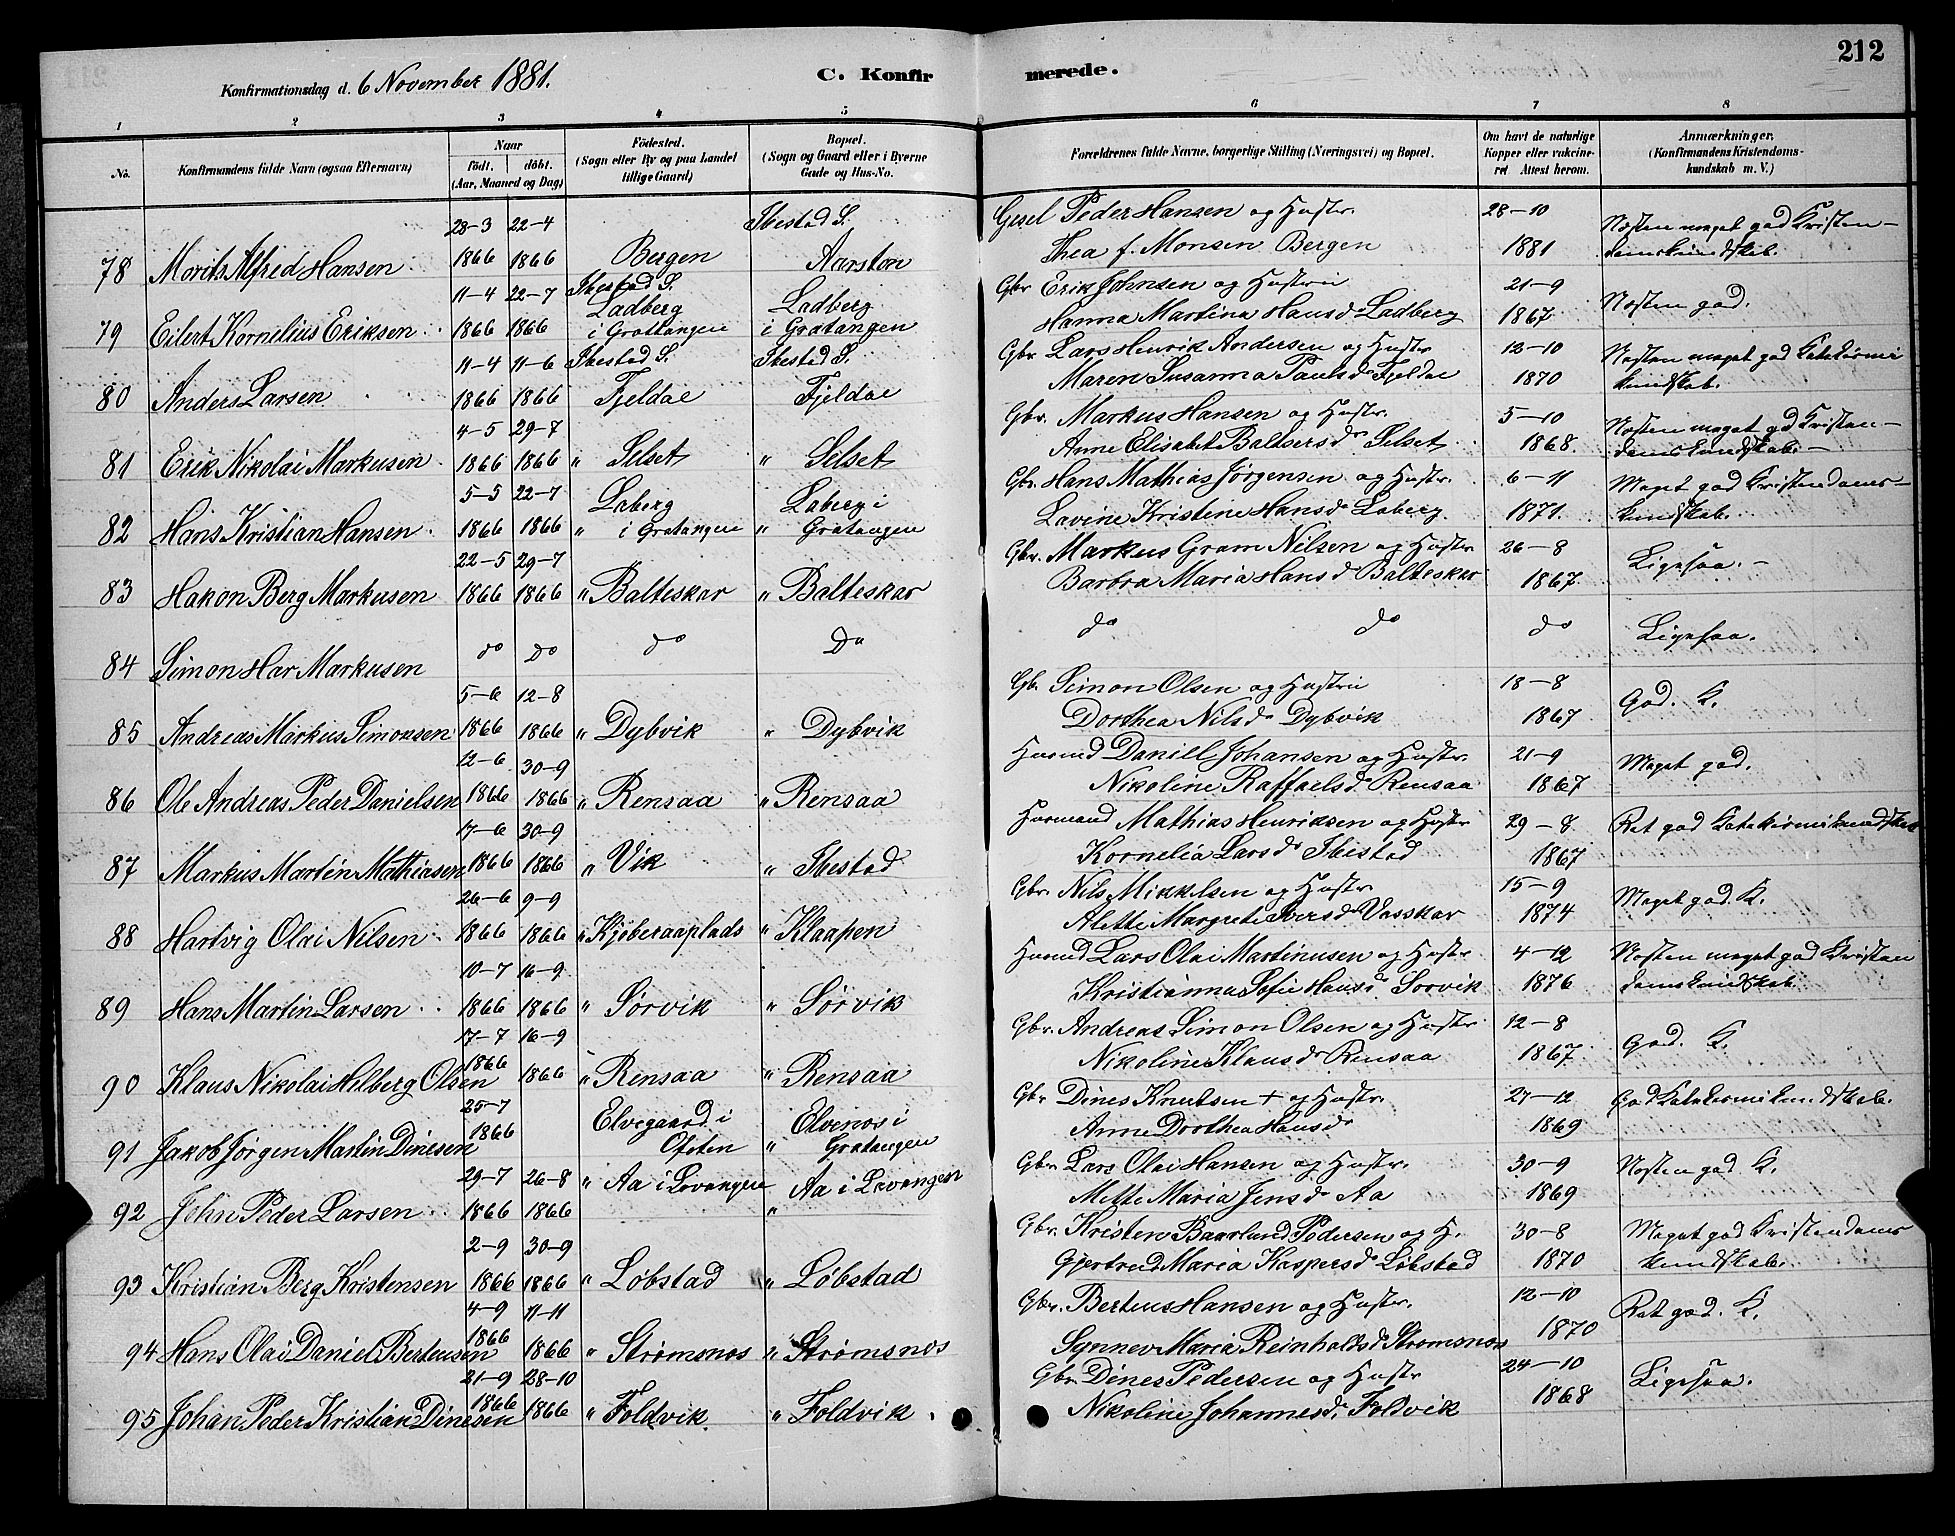 212
Konfirmationsdag d. 6 November 1881.
C. Konfirmerede.
1 2 3 4 5 6 7 8
No.
Konfirmandens fulde Navn (ogsaa Efternavn)
Naar
födt. döbt.
(Aar, Maaned og Dag)
Födested.
(Sogn eller By og paa Landet
tillige Gaard)
Bopæl.
(Sogn og Gaard eller i Byerne
Gade og Hus-No.
Forældrenes fulde Navne, borgerlige Stilling (Næringsvei) og Bopæl.
Om havt de naturlige
Kopper eller vakcine-
ret Attest herom.
Anmærkninger.
(Konfirmandens Kristendoms-
kundskab m. V.)
28-3 22-4 Ibestad S. Gesel Peder Hansen og Hustr. 28-10 Næsten meget god Kristen-
78 Morits Alfred Hansen 1866 1866 Bergen Aarstøn Thea f. Monsen Bergen 1881 domskundskab.
11-4 22-7 Ibestad S. Gbr Erik Johnsen og Hustru 21-9
Ladberg Ladberg Næsten god.
79 Eilert Kornelius Eriksen 1866 1866 i Grattangen i Gratangen Hanna Martina Hansd. Ladberg 1867
11-4 11-6 Ibestad S. Ibestad S. Gbr. Lars Henrik Andersen og Hustr 12-10 Næsten meget god Katekismi
80 Anders Larsen 1866 1866 Fjeldae Fjeldae Maren Susanna Paulsd. Fjeldae 1870 kundskab.
4-5 29-7 Gbr. Markus Hansen og Hustr. 5-10 Næsten meget god Kristen-
81 Erik Nikolai Markusen 1866 1866 " Selset " Selset Anne Elisabet Baltsersd. Selset 1868. domskundskab.
5-5 22-7 Laberg Laberg i Gbr. Hans Mathias Jørgensen og Hustr. 6-11 Meget god Kristendoms-
82 Hans Kristian Hansen 1866 1866 " i Gratangen " Gratangen Lavine Kristine Hansd. Laberg 1871. kundskab.
22-5 29-7 Gbr. Markus Gram Nilsen og Hustr 26-8 Ligesaa.
83 Hakon Berg Markusen 1866 1866 " Balteskar " Balteskar Barbra Maria Hansd Balteskar 1867
84 Simon Har Markusen do do do Do do do do Ligesaa.
5-6 12-8 Gb. Simon Olsen og Hustru 18-8
85 Andreas Markus Simonsen 1866 1866 " Dybvik " Dybvik Dorthea Nilsd. Dybvik 1867 God. K.
12-6 30-9 Husmd Daniell Johansen og Hustr. 21-9
86 Ole Andreas Peder Danielsen 1866 1866 " Rensaa " Rensaa Nikoline Raffaelsd. Rensaa 1867 Meget god.
17-6 30-9 Husmand Mathias Henriksen og Hustr 29-8 Ret god Katekismikundskab
87 Markus Martin Mathiasen 1866 1866 " Vik " Ibestad Kornelia Larsd. Ibestad 1867
26-6 9-9 Gbr. Nils Mikkelsen og Hustr. 15-9
88 Hartvig Olai Nilsen 1866 1866 " Kjøberaaplads " Klaapen Alette Margrete Iversd. Vasskar 1874 Meget god. K.
10-7 16-9 Husmd Lars Olai Martinusen og Hustr 4-12 Næsten meget god Kristen
89 Hans Martin Larsen 1866 1866 " Sørvik " Sørvik Kristianna Sofie Hansd. Sorvik 1876 domskundskab.
17-7 16-9 Gbr. Andreas Simon Olsen og Hustr 12-8
90 Klaus Nikolai Helberg Olsen 1866 1866 " Rensaa " Rensaa Nikoline Klausd. Rensaa 1867. God. K.
25-7 Elvegaard i Elvenes i Gbr Dines Knutsen + og Hustr. 27-12 God Katekismikundskab.
91 Jakob Jørgen Martin Dinesen 1866 Ofoten " Gratangen Anne Dorthea Hansd. 1869
29-7 26-8 " Aa i Lavangen Aa i Lavangen Gbr. Lars Olai Hansen og Hustr. 30-9 Næsten god. K.
92 John Peder Larsen 1866 1866 " Mette Maria Jensd. Aa 1869
2-9 30-9 Gbr. Kristen Baarlund Pedersen og H. 30-8 Meget god Kristendoms
93 Kristian Berg Kristensen 1866 1866 " Løbstad " Løbstad Gjertrud Maria Kaspersd. Løbstad 1870 kundskab.
4-9 11-11 Gbr. Berteus Hansen og Hustr. 12-10
94 Hans Olai Daniel Berteusen 1866 1866 " Strømsnos " Strømsnos Synnev Maria Reinholdtsd. Strømsnos 1870 Ret god. K.
21-9 28-10 Gbr. Dines Pedersen og Hustr 24-10
95 Johan Peder Kristian Dinesen 1866 1866 " Foldvik " Foldvik. Nikoline Johannesd. Foldvik 1868 Ligesaa.